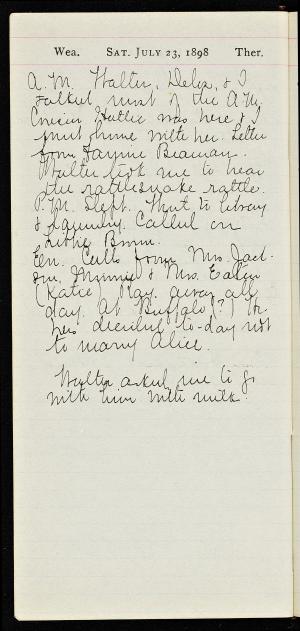 Wea. SAT. JULY 23, 1898 Ther.
A.M. Walter, Delia, & I
talked most of the A.M.
Cousin Hattie was here & I
went home with her. Letter
from Fannie Beaman.
Walter took me to hear
the rattlesnake rattle.
P.M. Slept. Went to library
& laundry. Called on
Ev. Calls from Mrs. Jack-
son, Minnie & Mrs. Eaton
(Katie). Ray away all
day. At Buffalo (?) He
has decided to-day not
to marry Alice.
Walter asked me to go
with him with milk.